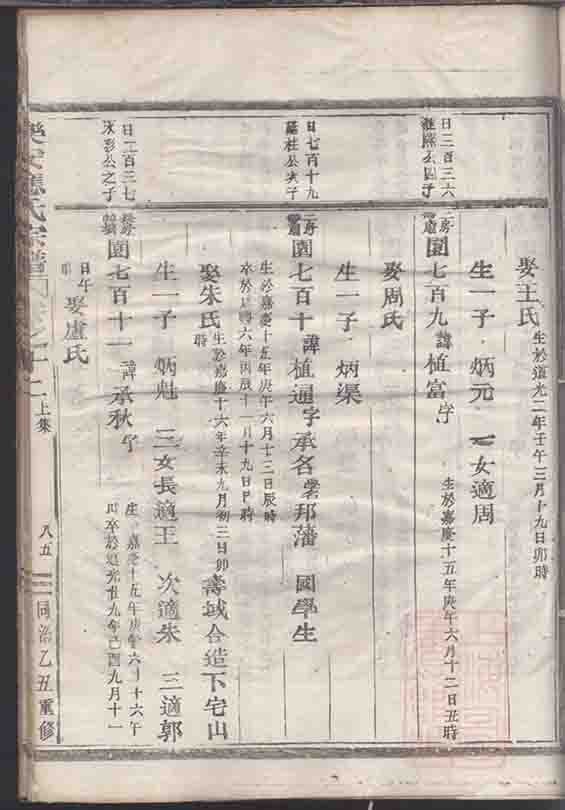 娶王氏 生於道光二年壬午三月十九日卯時
生一子 炳元 一女適周
日三百三六
公四子
園七百九 諱植富 字 生於嘉慶十五年庚午六月十二日丑時
娶周氏
生一子 炳渠
日七百十九
桂公次子
園七百十 諱植通 字承名 邦藩 國學生
生於嘉慶十五年庚午六月十三日辰時
卒於 六年丙辰十一月十九日 時
娶朱氏 生於嘉慶十六年辛未九月初三日卯時 壽域合造下宅山
生一子 炳魁 三女長適王 次適朱 三適郭
日二百三七
公之子
園七百十一 諱承秋 字 生 嘉慶十五年庚午六月十六午
卒於道光廿九年己酉九月十一
日午時
娶盧氏
氏宗譜 十二 上集 八五 同治乙丑重修